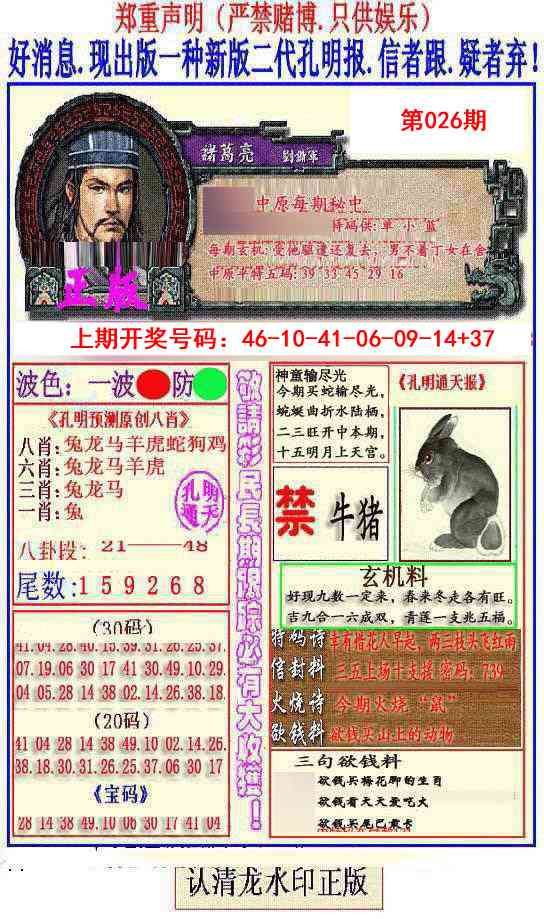 郑重声明（严禁赌博.只供娱乐）
好消息.现出版一种新版二代孔明报.信者跟.疑者弃!
第026期
諸葛亮 劉謝軍
中原每期秘史
特码供:单 小 蓝
每期玄机:
中原平特五码:39 33 45 29 16
正版
上期开奖号码：46-10-41-06-09-14+37
波色：一波 防
《孔明预测原创八肖》
八肖:兔龙马羊虎蛇狗鸡
六肖:兔龙马羊虎
三肖:兔龙马
一肖:兔
孔明
通天
八卦段：21——48
尾数:159268
（30码）
41.04.28.40.15.39.31.26.25.37
07.19.06.30 17 41 30.49.10.29
04 05.28 14 38 02.14.26.38.18
（20码）
41 04 28 14 38 49.10 02.14.26.
38.18.30.31.26.25.37.06 30 17
《宝码》
28 14 38 49.10 06 30 17 41 04
敬請彩民長期跟踪必有大收獲！
神童输尽光
今期买蛇输尽光，
蜿蜒曲折水陆栖，
二三旺开中本期，
十五明月上天宫。
禁 牛猪
《孔明通天报》
玄机料
好现九数一定来，春来冬走各有旺。
吉九合一六成双，青莲一支兆五福。
特码诗 幸有惜花人早起，两三枝头飞红雨
信封料 三五上场十支援 密码：739
火烧诗 今期火烧“鼠”
欲钱料 欲钱买山上的动物
三句欲钱料
欲钱买梅花脚的生肖
欲钱看天天爱吃火
欲钱买尾巴戴卡
认清龙水印正版